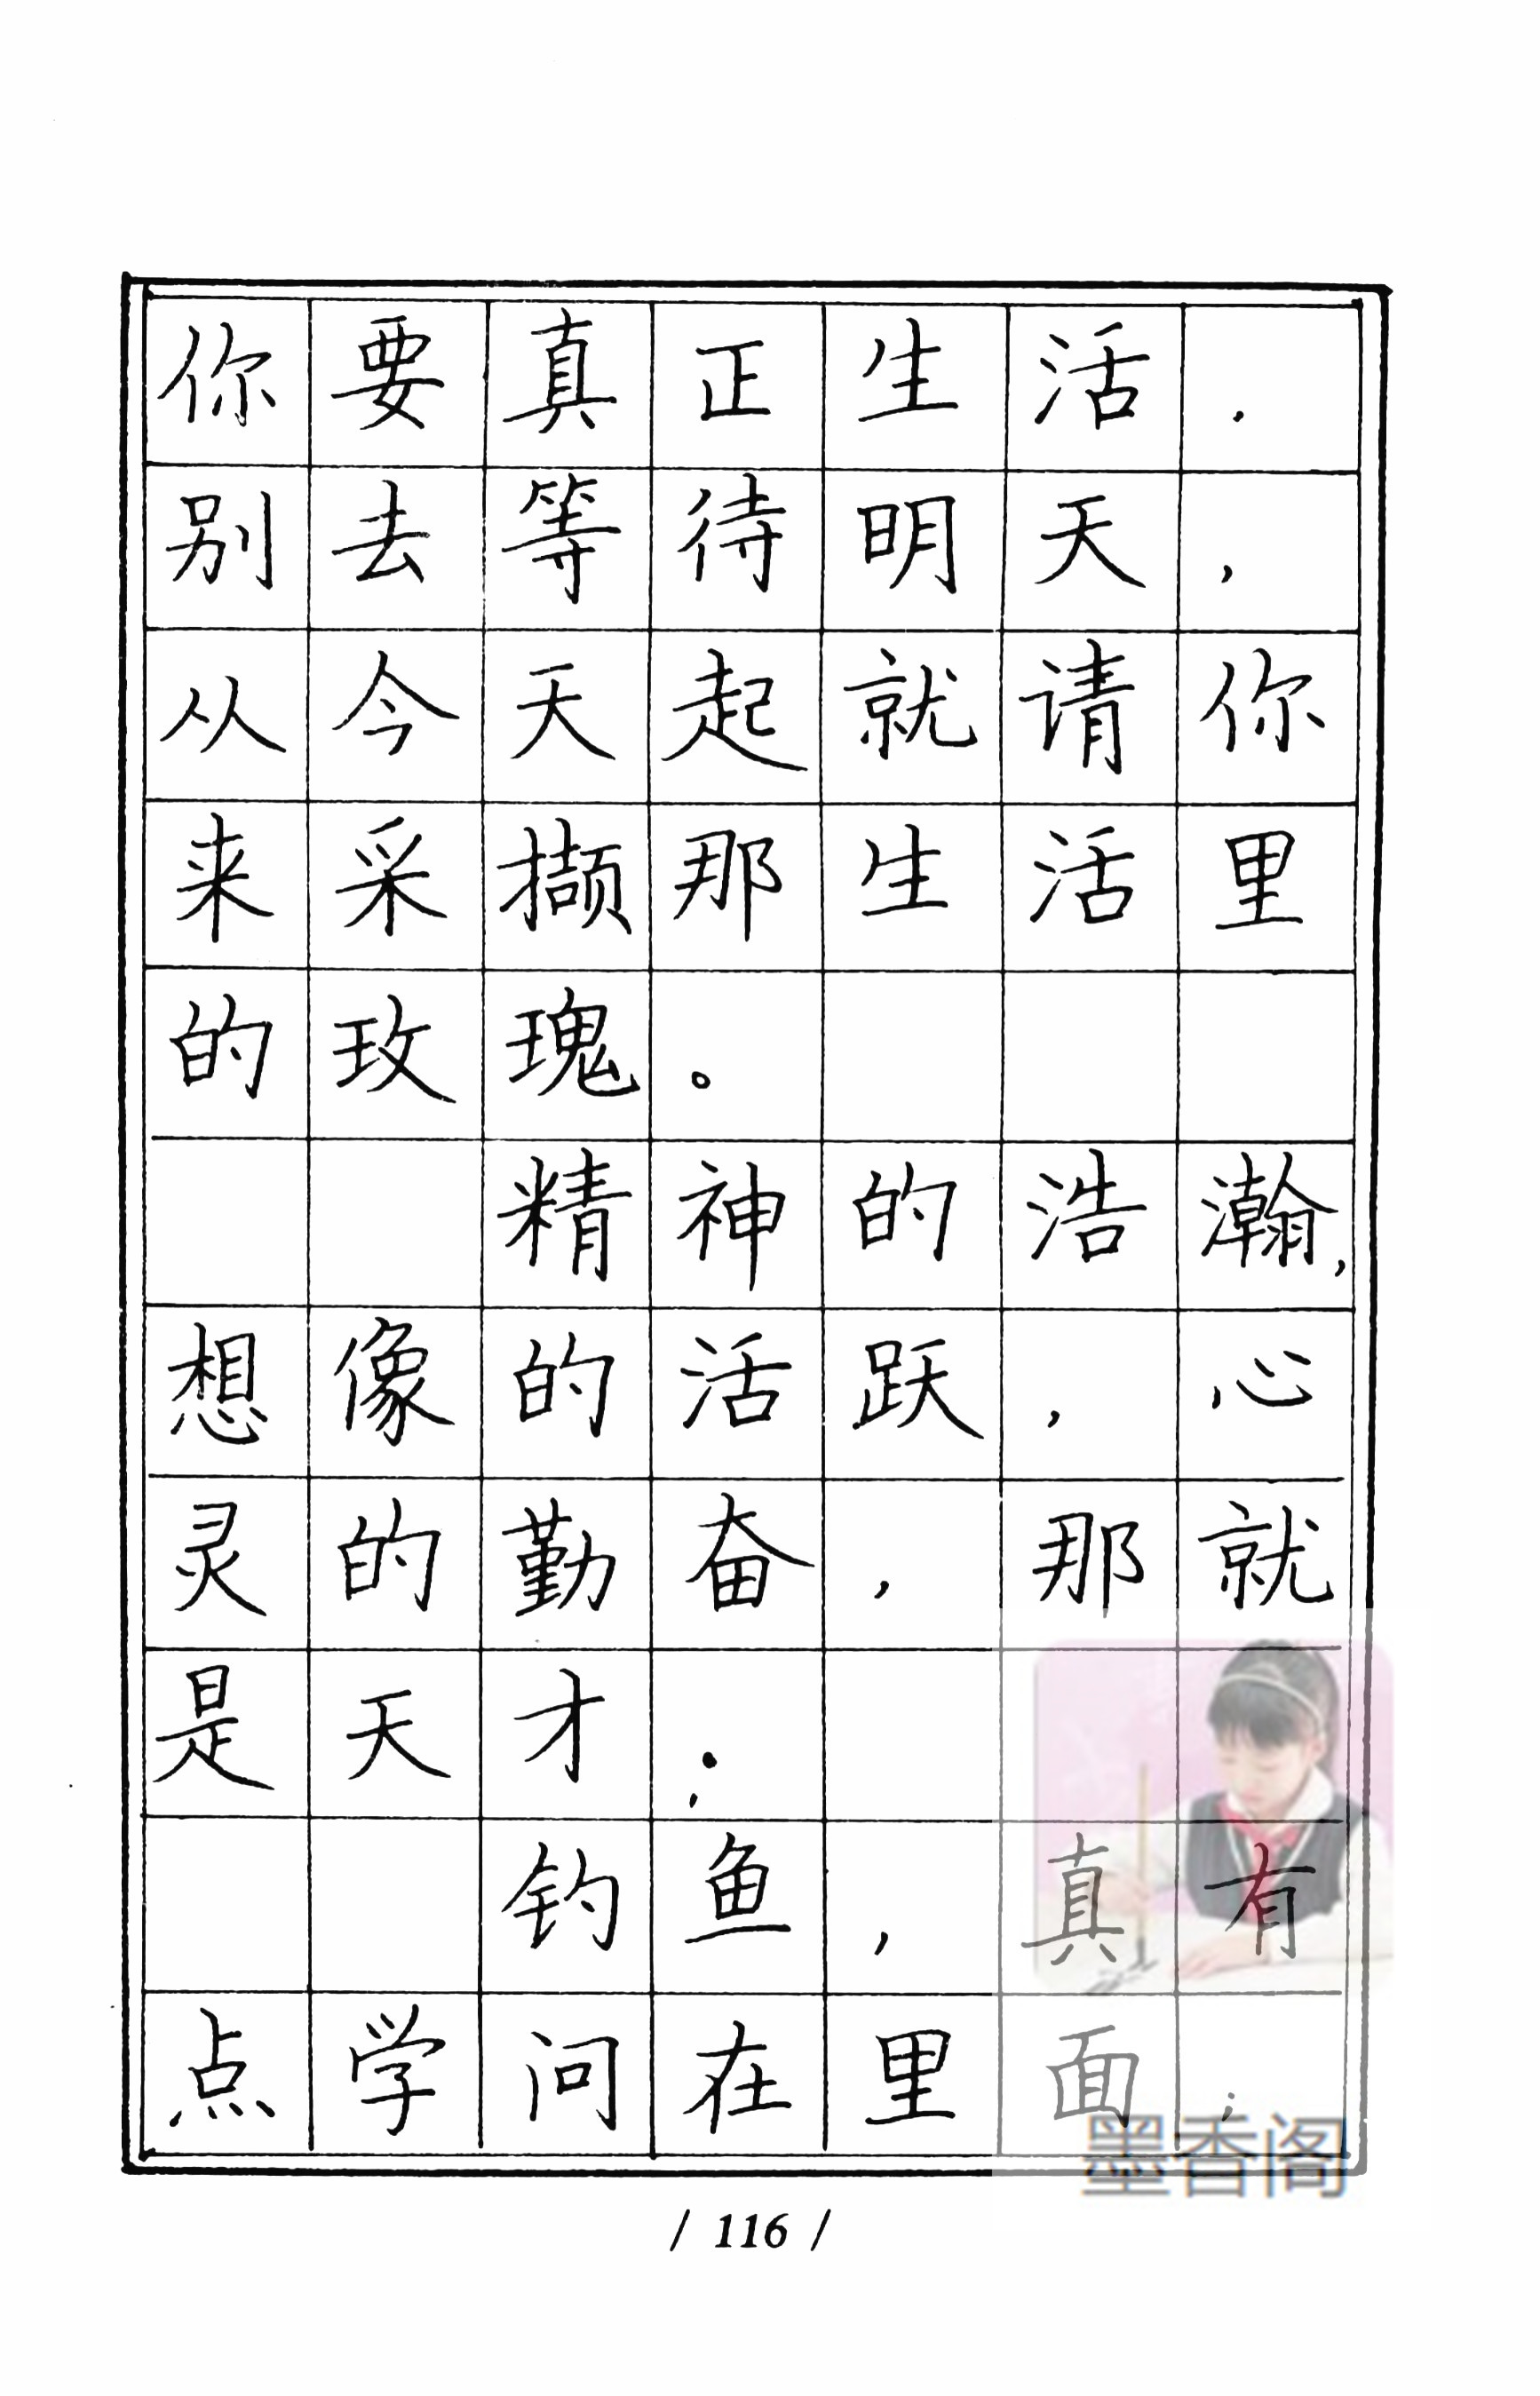 你要真正生活.
别去等待明天,
从今天起就请你
来采撷那生活里
的玫瑰。
精神的浩瀚,
想像的活跃,心
灵的勤奋,那就
是天才;
钓鱼,真有
点学问在里面;
墨香阁
/ 116 /